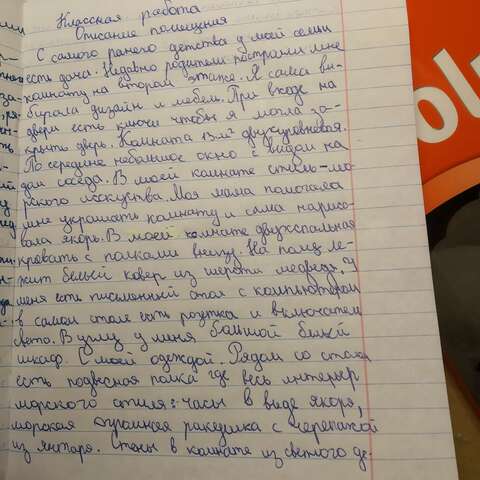 Классная работа
Описание помещения
С самого раннего детства у моей семьи
есть дача. Недавно родители построили мне
комнату на втором этаже. Я сама вы-
бирала дизайн и мебель. При входе на
двери есть ключи чтобы я могла за-
крыть дверь. Комната 13 м² двухуровневая.
По середине небольшое окно с видом на
дом соседа. В моей комнате стиль-мо-
рского искусства. Моя мама помогала
мне украшать комнату и сама нарисо-
вала якорь. В моей комнате двухспальная
кровать с полками внизу. На полу ле-
жит белый ковер из шерсти медведя. У
меня есть письменный стол с компьютером
в самом столе есть розетка и включатель
света. В углу у меня большой белый
шкаф. С моей одеждой. Рядом со столом
есть подвесная полка где весь интерьер
морского стиля: часы в виде якоря,
морская огромная ракушка с черепахой
из янтаря. Стены в комнате из светлого де-